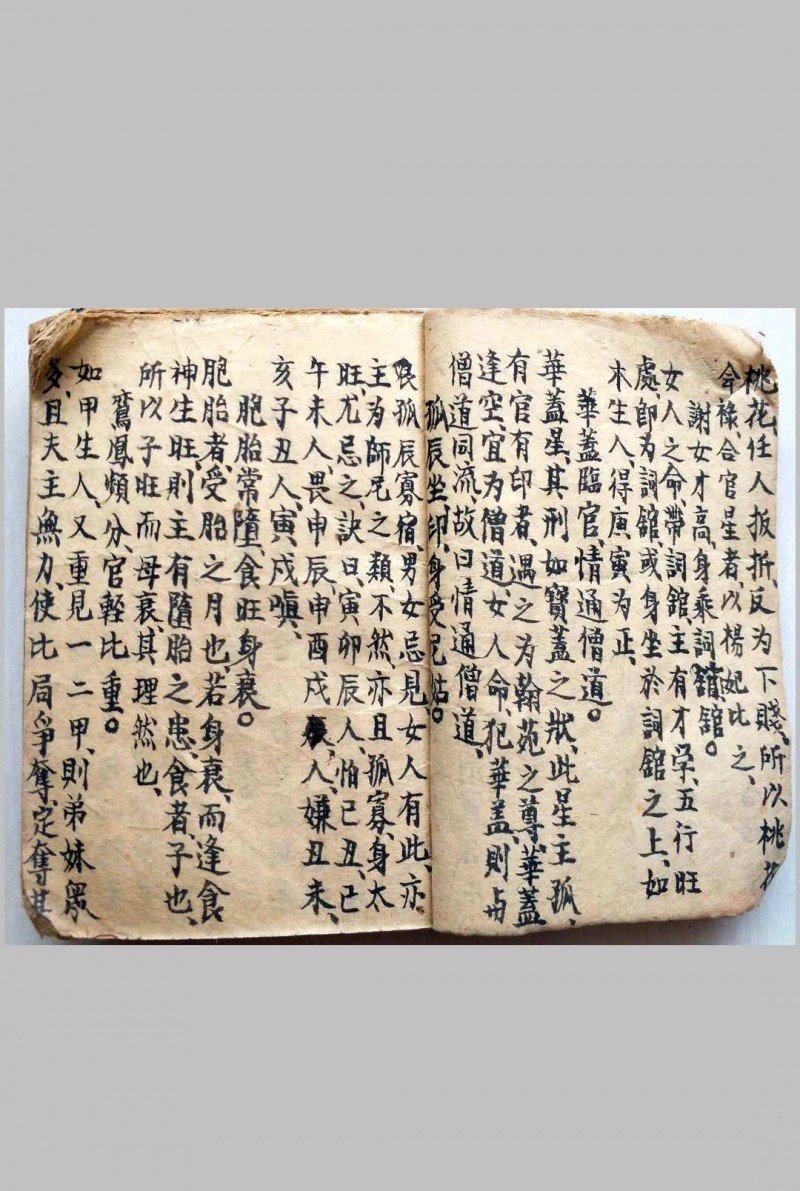 桃花、任人扳折、反为下賤、所以桃花
会禄、合官星者、以楊妃比之、
謝女才高、身乘詞舘。
女人之命、帶詞舘、主有才学、五行旺
處、即为詞舘、或身坐於詞舘之上、如
木生人、得庚寅为正、
華蓋臨官、情通僧道。
華蓋星、其刑如寶蓋之狀、此星主孤、
有官有印者、遇之为翰苑之尊、華蓋
逢空、宜为僧道、女人命、犯華盖、則与
僧道同流、故曰情通僧道、
孤辰坐印、身受尼姑。
孤辰寡宿、男女忌見、女人有此、亦
主为師尼之類、不然亦且孤寡、身太
旺、尤忌之、訣曰、寅卯辰人、怕巳丑、巳
午未人、畏申辰、申酉戍人、嫌丑未、
亥子丑人、寅戍嗔、
胞胎常墮、食旺身衰。
胞胎者、受胎之月也、若身衰、而逢食
神生旺、則主有墮胎之患、食者、子也、
所以子旺而母衰、其理然也、
鸞鳳頻分、官輕比重。
如甲生人、又重見一二甲、則弟妹衆
多、且夫主無力、使比局争奪、定奪其